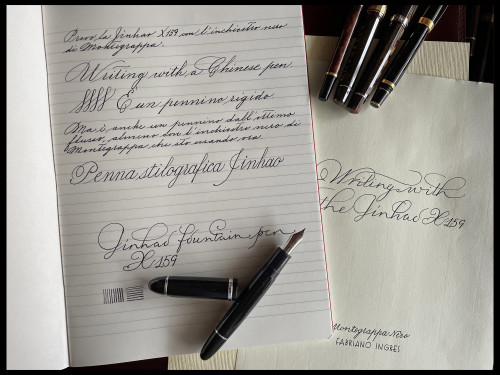 Provo la Jinhao X159 con l'inchiostro nero
di Montegrappa.
Writing with a Chinese pen
È un pennino rigido
Ma è anche un pennino dall'ottimo
flusso, almeno con l'inchiostro nero di
Montegrappa che sto usando ora
Penna stilografica Jinhao
Jinhao fountain pen
X159
Writing with
the Jinhao X159
Montegrappa Nero
FABRIANO INGRES